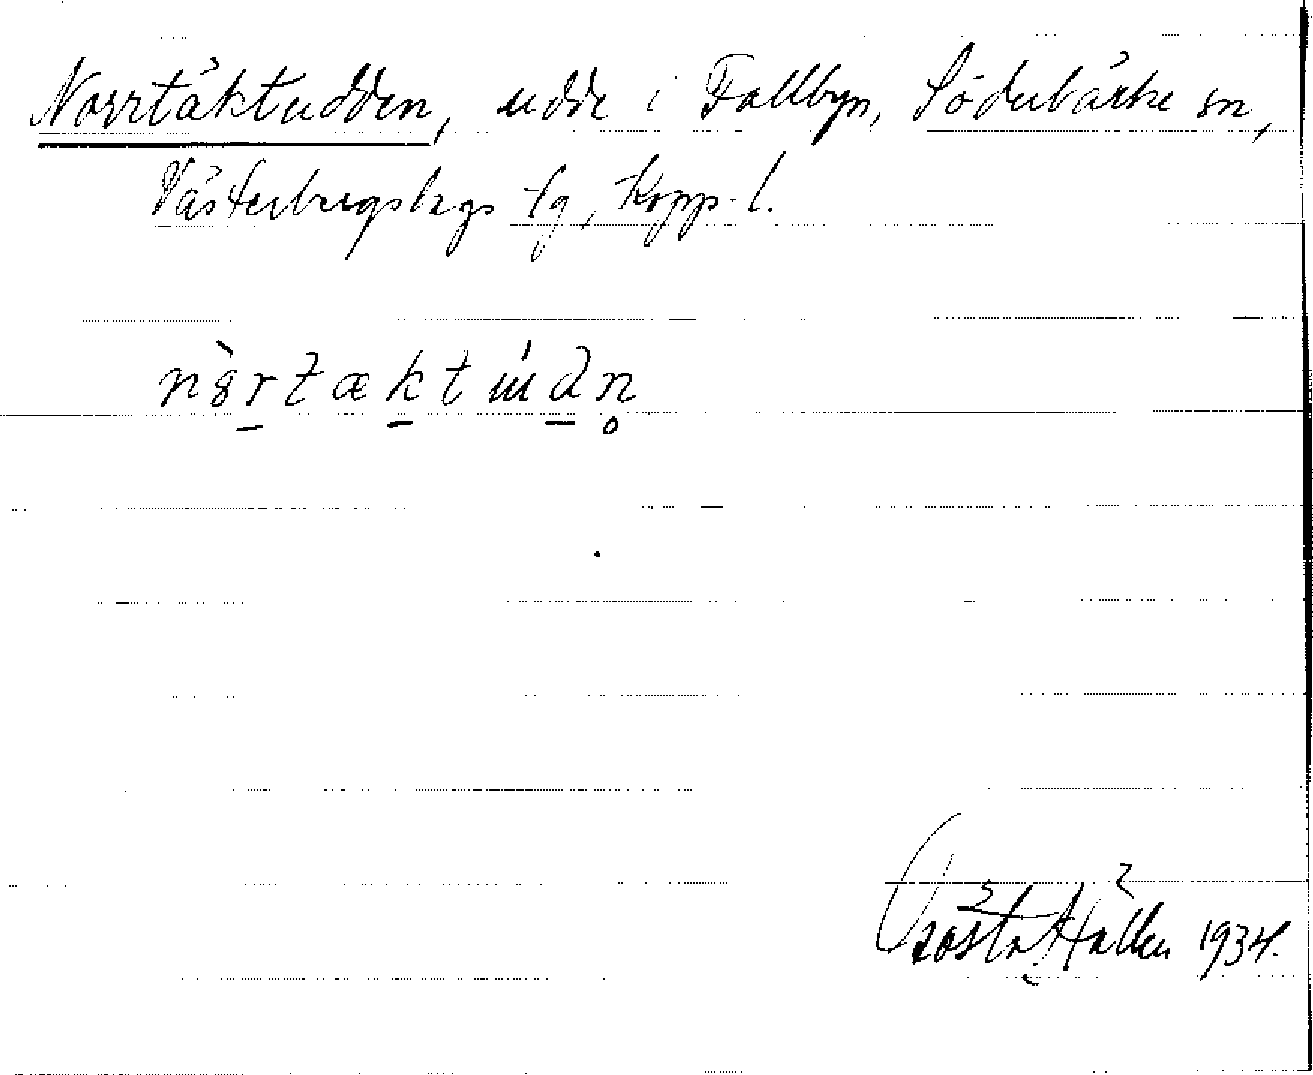 Norrtäktudden, udde i Fallbyn, Söderbärke sn,
Västerbergslags tg, Kopp. l.
n8̀rtæktɯ́dn̥
Gösta Hallén 1934.